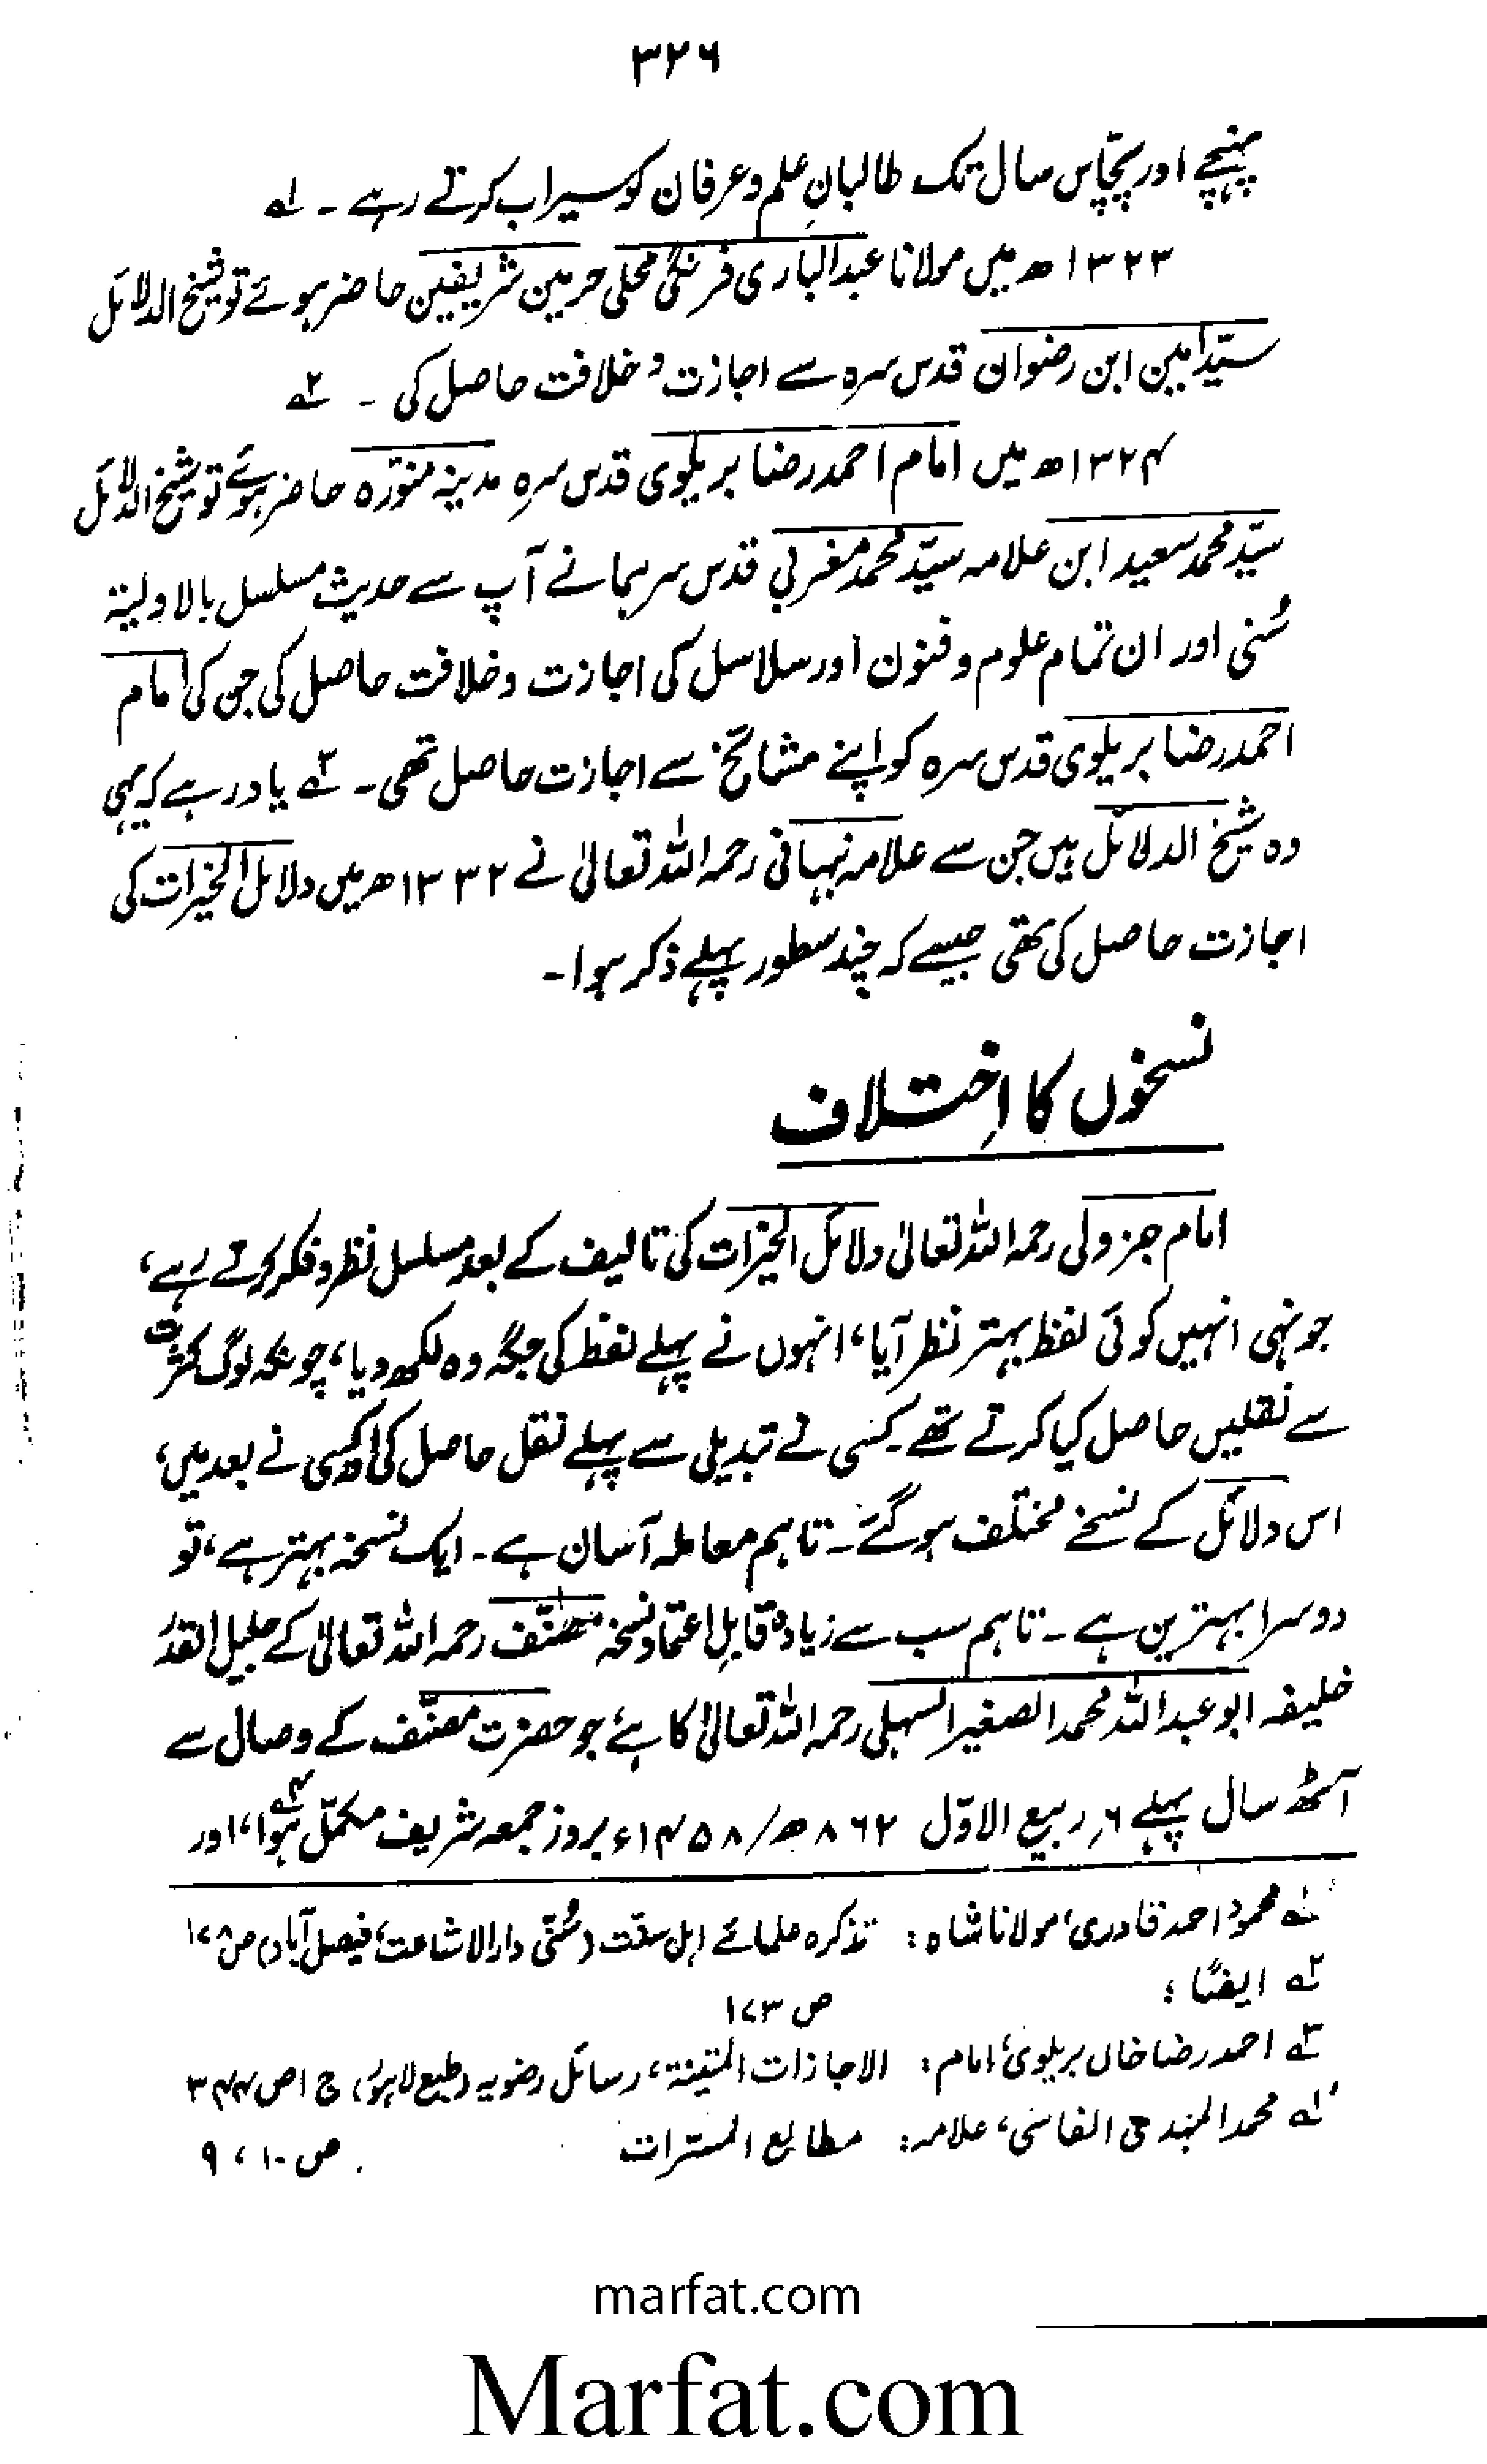 ۳۲۶
پہنچے اور پچّاس سال تک طالبانِ علم و عرفان کو سیراب کرتے رہے ۔ ۱؎
۱۳۲۳ھ میں مولانا عبدالباری فرنگی محلی حرمین شریفین حاضر ہوئے تو شیخ الدلائل
سیّد امین ابن رضوان قدس سرہ سے اجازت و خلافت حاصل کی ۔ ۲؎
۱۳۲۴ھ میں امام احمد رضا بریلوی قدس سرہ مدینہ منوّرہ حاضر ہوئے تو شیخ الدلائل
سیّد محمد سعید ابن علامہ سیّد محمد مغربی قدس سرہما نے آپ سے حدیث مسلسل بالاولیۃ
سُنی اور ان تمام علوم و فنون اور سلاسل کی اجازت و خلافت حاصل کی جن کی امام
احمد رضا بریلوی قدس سرہ کو اپنے مشائخ سے اجازت حاصل تھی ۔ ۳؎ یاد رہے کہ یہی
وہ شیخ الدلائل ہیں جن سے علامہ نبہانی رحمہ اللہ تعالیٰ نے ۱۳۳۲ھ میں دلائل الخیرات کی
اجازت حاصل کی تھی جیسے کہ چند سطور پہلے ذکر ہوا ۔
نسخوں کا اِختلاف
امام جزولی رحمہ اللہ تعالیٰ دلائل الخیرات کی تالیف کے بعد مسلسل نظر و فکر کرتے رہے،
جونہی انہیں کوئی لفظ بہتر نظر آیا، انہوں نے پہلے لفظ کی جگہ وہ لکھ دیا، چونکہ لوگ کثرت
سے نقلیں حاصل کیا کرتے تھے ۔ کسی نے تبدیلی سے پہلے نقل حاصل کی اور کسی نے بعد میں،
اس دلائل کے نسخے مختلف ہو گئے ۔ تاہم معاملہ آسان ہے ۔ ایک نسخہ بہتر ہے، تو
دوسرا بہترین ہے ۔ تاہم سب سے زیادہ قابلِ اعتماد نسخہ مصنّف رحمہ اللہ تعالیٰ کے جلیل القدر
خلیفہ ابو عبداللہ محمد الصغیر السہلی رحمہ اللہ تعالیٰ کا ہے، جو حضرت مصنّف کے وصال سے
آٹھ سال پہلے ۶ ربیع الاوّل ۸۶۲ھ/۱۴۵۸ء بروز جمعہ شریف مکمّل ہوا، ۴؎ اور
۱؎ محمود احمد قادری، مولانا شاہ: تذکرہ علمائے اہل سنّت (سُنّی دارالاشاعت، فیصل آباد) ص ۱۷۸
۲؎ ایضًا: ص ۱۷۳
۳؎ احمد رضا خاں بریلوی، امام: الاجازات المتینۃ، رسائل رضویہ (طبع لاہور) ج ۱ ص ۳۴۴
۴؎ محمد المہدی الفاسی، علامہ: مطالع المسرات ص ۱۰، ۹
marfat.com
Marfat.com